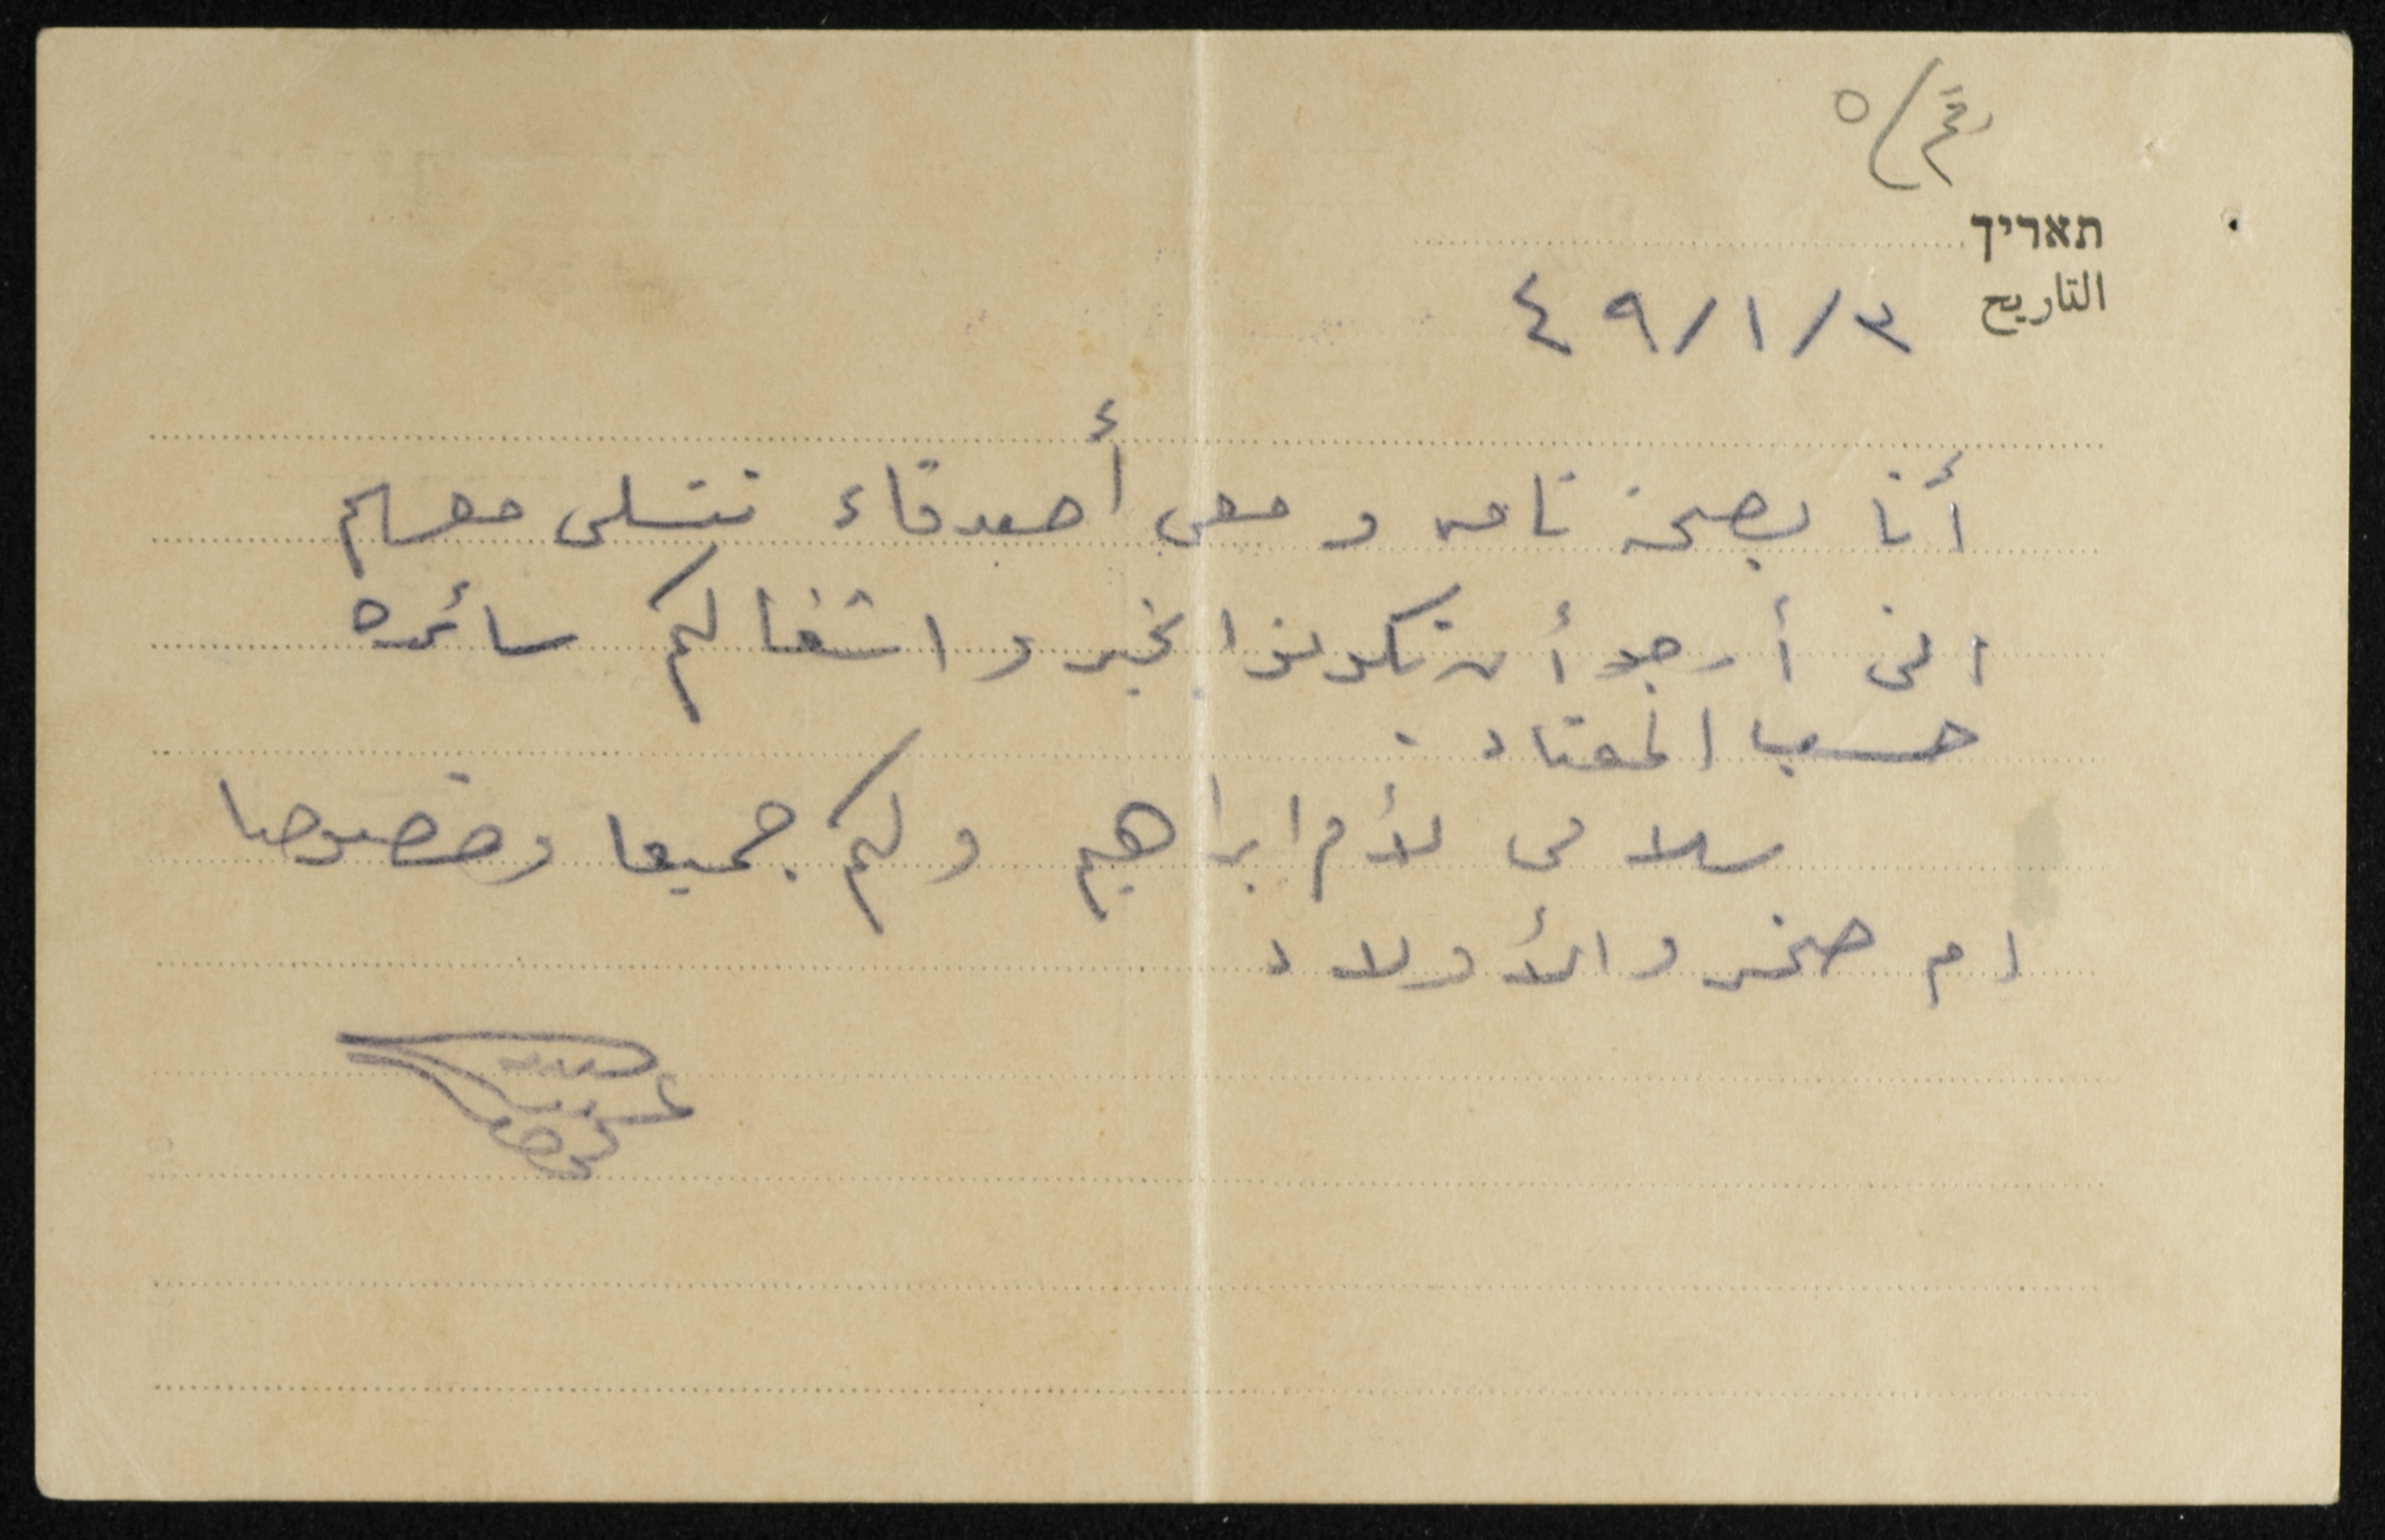 رقم / ٥
תאריך
التاريخ ٣/١/٤٩
أنا بصحة تامه ومعى أصدقاء نتسلى معهم
انى أرجو أن تكونوا بخير واشغالكم سائره
حسب المعتاد .
سلامى لأم ابراهيم ولكم جميعا وخصوصا
ام صخر والأولاد